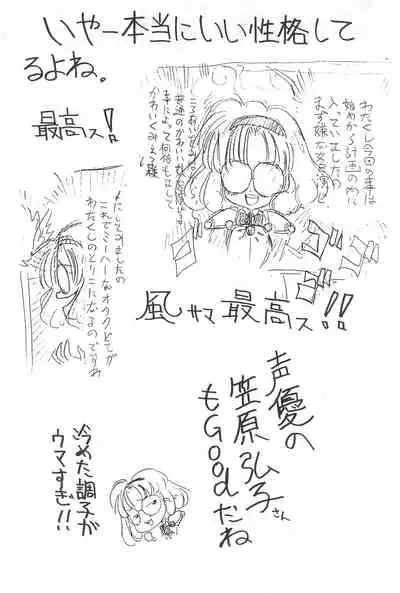 いやー本当にいい性格して
るよね。
最高ス!!
わたくし今回の事は
始めから計画の内に
入っていましたの
まず嫌な女を演じ
普通のかわいい女に
事によって何倍も
かわいくみえる様
にしてみましたの
これでミーハーなオタクどもが
わたくしのとりこになるのですわ
ゴゴゴ
風サマ最高ス!!
声優の
笠原弘子さん
もGoodだね
冷めた調子が
ウマすぎ!!